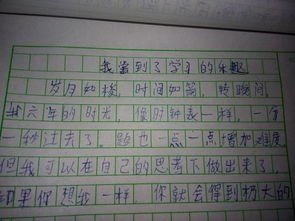 我尝到了学习的乐趣
岁月如梭，时间如箭，转眼间
六年的时光，像时钟表一样，一分
一秒过去了。题也一点一点增加难度
但我可以在自己的思考下做出来了，
如果你想我一样，你就会得到极大的